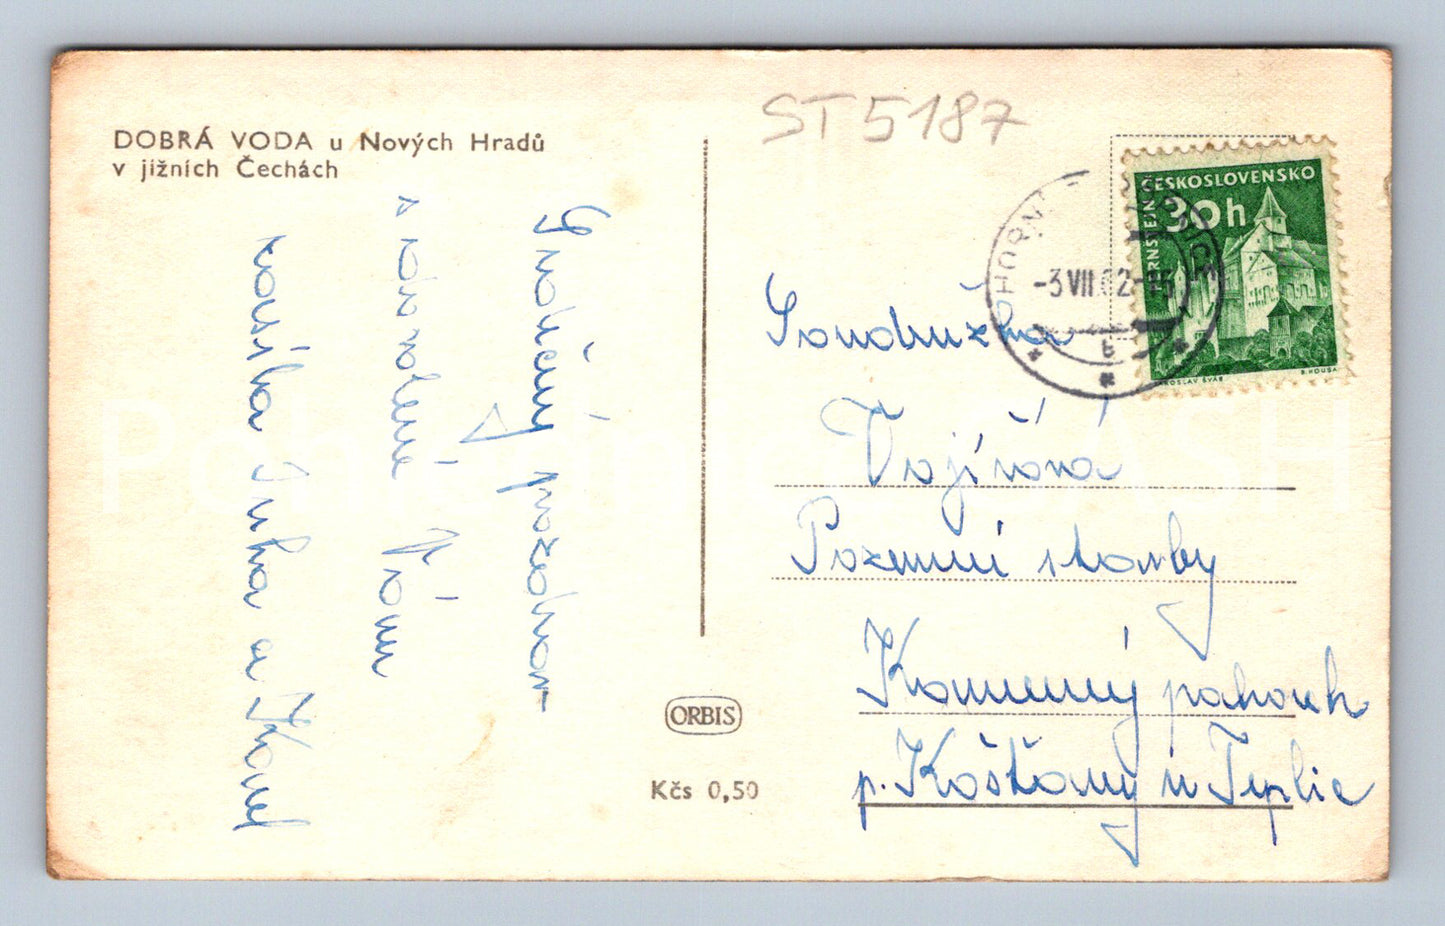 DOBRÁ VODA u Nových Hradů
v jižních Čechách
ST 5187
Srdečný pozdrav
s dovolené Vám
posílá a Karel
Soudružka
Vojířová
Pozemní stavby
Kamenný pahorek
p. Košťany u Teplic
ČESKOSLOVENSKO
30h
-3.VII.62-15
HORN
6
B. HOUSA
JAROSLAV ŠVÁB
ORBIS
Kčs 0,50